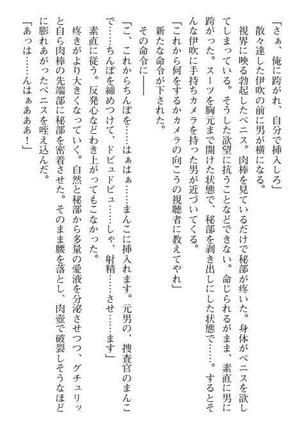 「さぁ、俺に跨がれ、自分で挿入しろ」
散々達した伊吹の前に男が横になる。
視界に映る勃起したペニス。肉棒を見ているだけで秘部が疼いた。身体がペニスを欲し
てしまっている。そうした欲望に抗うことなどできない。命じられるがまま、素直に男に
跨がった。スーツを胸元まで開けた状態で、秘部を剥き出しにした状態で……。するとそ
んな伊吹に手持ちカメラを持った男が近づいてくる。
「これから何をするかカメラの向こうの視聴者に教えてやれ」
新たな命令が下された。
その命令に――
「こ、これからちんぽを……はぁはぁ……まんこに挿入れます。元男の、捜査官のまんこ
で……ちんぽを締めつけて、ドビュドビュ……しゃ、射精……させ……ます」
素直に従う。反発心などわき上がってもこなかった。
疼きがより大きくなっていく。自然と秘部から多量の愛液を分泌させつつ、グチュリッ
と自ら肉棒の先端部に秘部を密着させた。そのまま腰を落とし、肉壺で破裂しそうなほど
に膨れあがったペニスを咥え込んだ。
「あっは……んはぁぁぁぁ！」